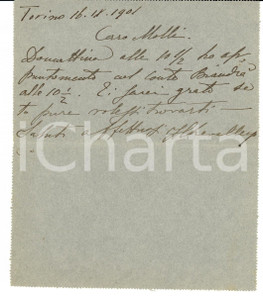 Torino 16.11.1901
Caro Molli.
Domattina alle 10 1/2 ho ap-
puntamento col Conte Biandrà
alle 10 1/2. Ti sarei grato se
tu pure volessi trovarti
Saluti affettuosi
iCharta